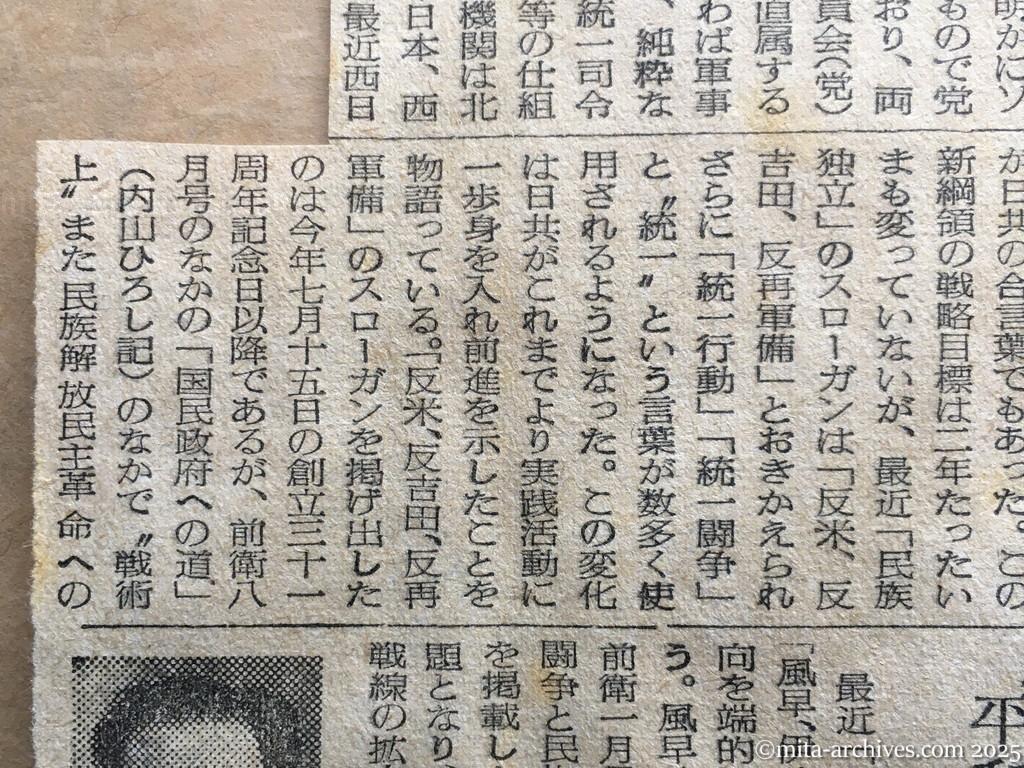 明かにソ
もので党
おり、両
員会（党）
直属する
わば軍事
、純粋な
統一司令
等の仕組
機関は北
日本、西
最近西日
が日共の合言葉でもあった。この
新綱領の戦略目標は二年たったい
まも変っていないが、最近「民族
独立」のスローガンは「反米、反
吉田、反再軍備」とおきかえられ
さらに「統一行動」「統一闘争」
と〝統一〟という言葉が数多く使
用されるようになった。この変化
は日共がこれまでより実践活動に
一歩身を入れ前進を示したことを
物語っている。「反米、反吉田、反再
軍備」のスローガンを掲げ出した
のは今年七月十五日の創立三十一
周年記念日以降であるが、前衛八
月号のなかの「国民政府への道」
（内山ひろし記）のなかで〝戦術
上〟また民族解放民主革命への
最近
「風早、伊
向を端的
う。風早
前衛一月
闘争と民
を掲載し
題となり
戦線の拡
©mita-archives.com 2025